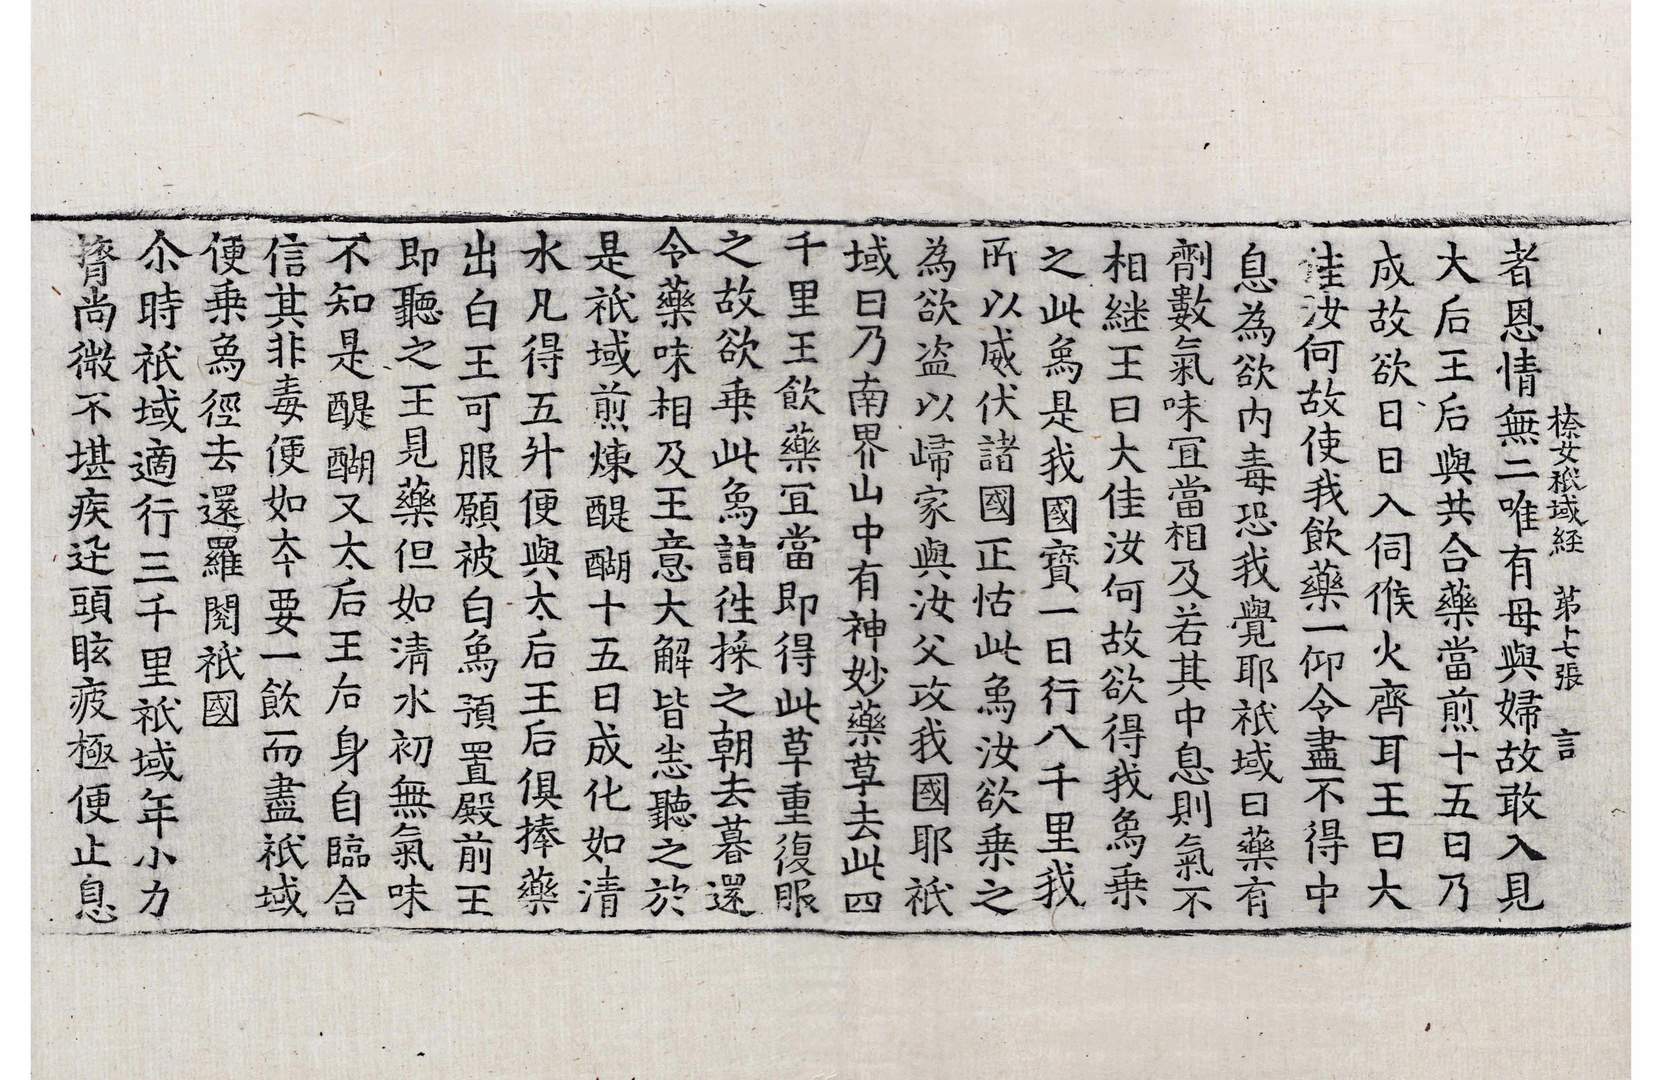 㮈女祇域経 第十七張 言
者恩情無二唯有母與婦故敢入見
大后王后與共合藥當煎十五日乃
成故欲日日入伺候火齊耳王曰大
佳汝何故使我飲藥一仰令盡不得中
息為欲內毒恐我覺耶祇域曰藥有
劑數氣味冝當相及若其中息則氣不
相継王曰大佳汝何故欲得我象乗
之此象是我國寶一日行八千里我
所以威伏諸國正怙此象汝欲乗之
為欲盗以歸家與汝父攻我國耶祇
域曰乃南界山中有神妙藥草去此四
千里王飲藥冝當即得此草重復服
之故欲乗此象詣徃採之朝去暮還
令藥味相及王意大解皆悉聽之於
是祇域煎煉醍醐十五日成化如清
水凡得五升便與太后王后俱捧藥
出白王可服願被白象預置殿前王
即聽之王見藥但如清水初無氣味
不知是醍醐又太后王后身自臨合
信其非毒便如夲要一飲而盡祇域
便乗象徑去還羅閱祇國
尒時祇域適行三千里祇域年小力
膂尚微不堪疾迅頭眩疲極便止息